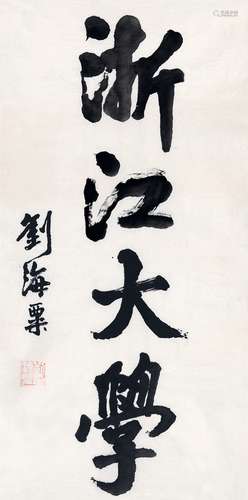 浙江大學
劉海粟